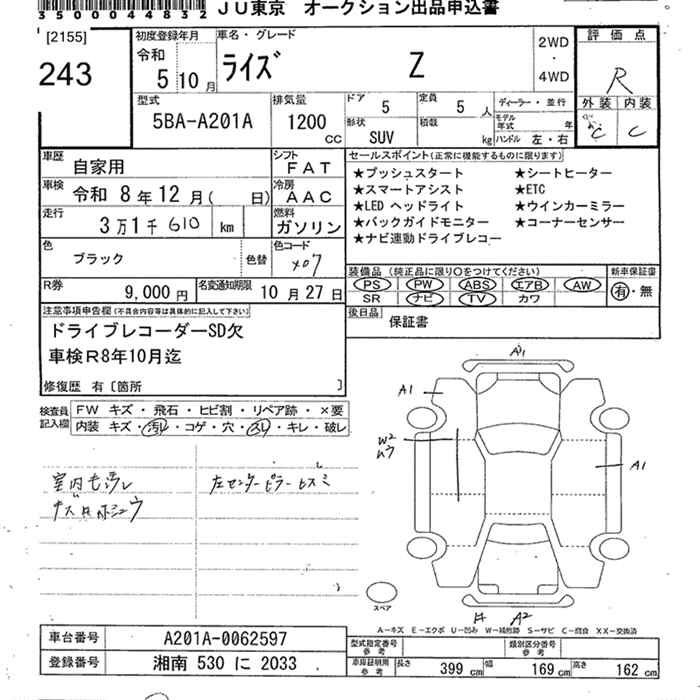 35004832 JU東京 オークション出品申込書
[2155]
243
初度登録年月 令和 5 10 月
車名・グレード ライズ Z
2WD ・ 4WD
評価点 R
外装 C 内装 C
型式 5BA-A201A
排気量 1200 CC
ドア 5 定員 5 人
形状 SUV 積載 kg
ディーラー・並行
モデル年式 年
ハンドル 左・右
車歴 自家用
シフト FAT
車検 令和 8年12月( 日)
冷房 AAC
走行 3万1千610 km
燃料 ガソリン
色 ブラック 色替
色コード X07
R券 9,000円 名変通知期限 10月27日
セールスポイント(正常に機能するものに限ります)
★プッシュスタート ★シートヒーター
★スマートアシスト ★ETC
★LED ヘッドライト ★ウインカーミラー
★バックガイドモニター ★コーナーセンサー
★ナビ連動ドライブレコー
装備品(純正品に限り○をつけてください) 新車保証書
PS PW ABS エアB AW 有・無
SR ナビ TV カワ
後日品 保証書
注意事項申告欄(不具合内容等は具体的に記入して下さい)
ドライブレコーダーSD欠
車検R8年10月迄
修復歴 有〔箇所 〕
検査員記入欄 FW キズ・飛石・ヒビ割・リペア跡・×要
内装 キズ・汚レ・コゲ・穴・スレ・キレ・破レ
室内キズ汚レ
左センターピラーヒズミ
A1
A1
W2
A1
A2
スペア
A―キズ E―エクボ U―凹み W―補修跡 S―サビ C―腐食 XX―交換済
車台番号 A201A-0062597
登録番号 湘南 530 に 2033
型式指定番号 参考 類別区分番号 参考
車庫証明用 参考 長さ 399 cm 幅 169 cm 高さ 162 cm